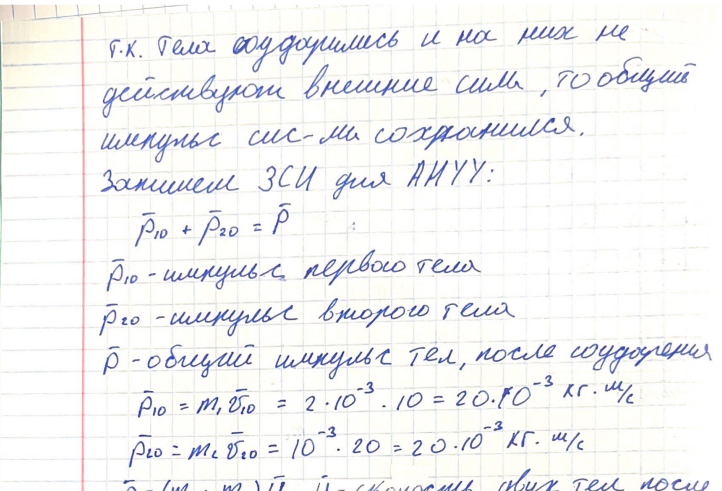 т.к. тела соударились и на них не
действуют внешние силы, то общий
импульс сис-мы сохранился.
Запишем ЗСИ для АНУУ:
p̄₁₀ + p̄₂₀ = p̄
p̄₁₀ - импульс первого тела
p̄₂₀ - импульс второго тела
p̄ - общий импульс тел, после соударения
p̄₁₀ = m₁v̄₁₀ = 2·10⁻³ · 10 = 20·10⁻³ кг·м/с
p̄₂₀ = m₂v̄₂₀ = 10⁻³ · 20 = 20·10⁻³ кг·м/с
скорость двух тел после